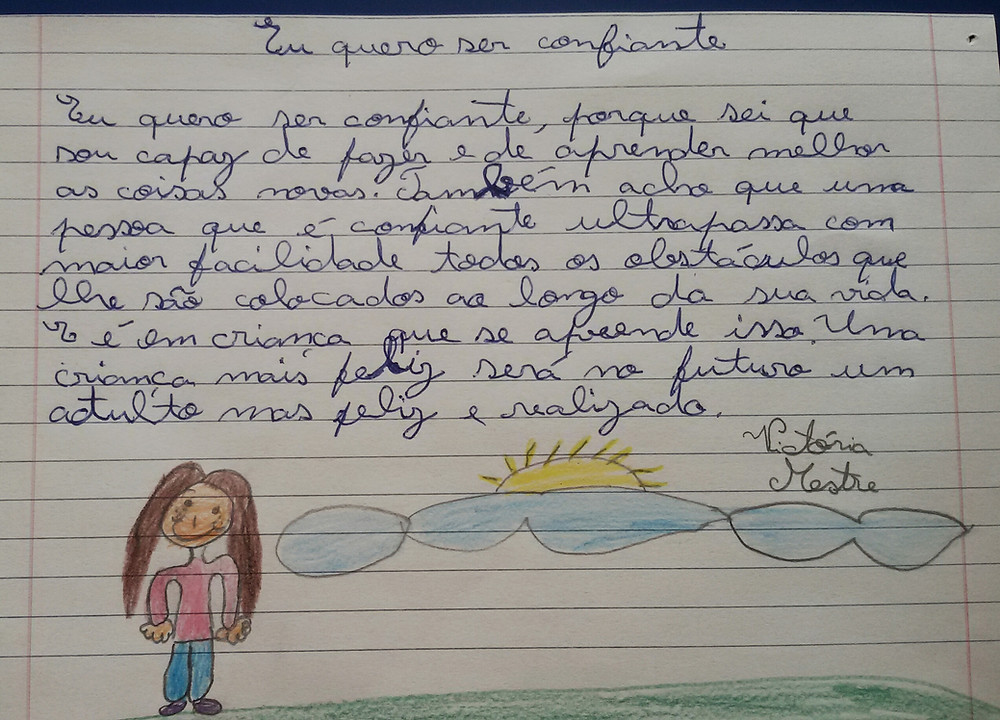 Eu quero ser confiante
Eu quero ser confiante, porque sei que
sou capaz de fazer e de aprender melhor
as coisas novas. Também acho que uma
pessoa que é confiante ultrapassa com
maior facilidade todos os obstáculos que
lhe são colocados ao longo da sua vida.
E é em criança que se aprende isso. Uma
criança mais feliz será no futuro um
adulto mas feliz e realizado.
Victória
Mestre